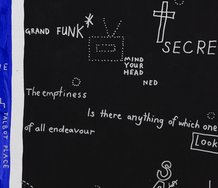 GRAND FUNK*
SECRE
MIND
YOUR
HEAD
NED
The emptiness
Is there anything of which one
of all endeavour
Look
TALBOT PLACE